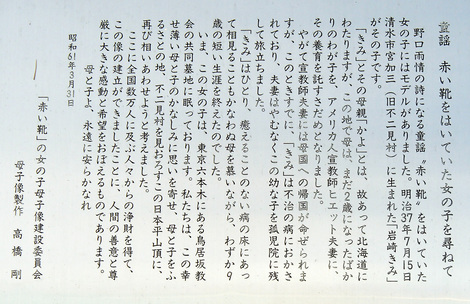 童謡 赤い靴をはいていた女の子を尋ねて
野口雨情の詩になる童謡〝赤い靴〟をはいていた
女の子にはモデルがありました。明治37年7月15日
清水市宮加三(旧不二見村)に生まれた「岩崎きみ」
がその子です。
「きみ」とその母親「かよ」とは、故あって北海道に
わたりますが、この地で母は、まだ2歳になったばか
りのわが子を、アメリカ人宣教師ヒュエット夫妻に、
その養育を託すさだめとなりました。
やがて宣教師夫妻には母国への帰国が命ぜられま
すが、このときすでに、「きみ」は不治の病におかさ
れており、夫妻はやむなくこの幼な子を孤児院に残
して旅立ちました。
「きみ」はひとり、癒えることのない病の床にあっ
て相見ることもかなわぬ母を慕いながら、わずか9
歳の短い生涯を終えたのでした。
いま、この女の子は、東京六本木にある鳥居坂教
会の共同墓地に眠っております。私たちは、この幸
せ薄い母と子のかなしみに思いを寄せ、母と子をふ
るさとの地、不二見村を見おろすこの日本平山頂に、
再び相いあわせようと考えました。
ここに全国数万人に及ぶ人々からの浄財を得て、
この像の建立ができましたことに、人間の善意と尊
厳に大きな感動と希望をおぼえるものであります。
母と子よ、永遠に安らかなれ
昭和61年3月31日
「赤い靴」の女の子母子像建設委員会
母子像製作 高橋 剛